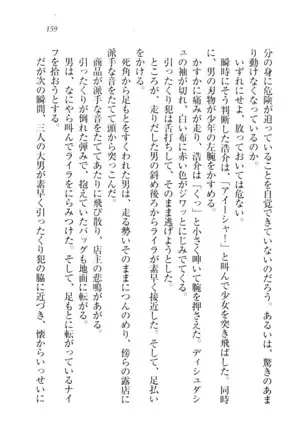 159
分の身に危険が迫っていることを自覚できていないのだろう。あるいは、驚きのあま
り動けなくなっているのか。
いずれにせよ、放っておいてはいけない。
瞬時にそう判断した浩介は、「アイーシャー!」と叫んで少女を突き飛ばした。同時
に、男の刃物が少年の左腕をかすめる。
かすかに痛みが走り、浩介は「くっ」と小さく呻いて腕を押さえた。ディシュダシ
ュの袖が切れ、白い布に赤い色がジワッとにじみでてくる。
引ったくり犯は舌打ちして、そのまま逃げようとした。
ところが、走りだした男の斜め後ろからライラが素早く接近した。そして、足払い
死角から足もとをすくわれた男は、走る勢いそのままにつんのめり、傍らの露店に
派手な音をたてて頭から突っこんだ。
商品が派手な音をたててあたりに飛び散り、店主の悲鳴があがる。
引ったくりが倒れた弾みで、抱えていたバッグも地面に転がる。
男は、なにやら叫んでライラをにらみつけた。そして、足もとに転がっているナイ
フを拾おうとする。
だが次の瞬間、三人の大男が素早く引ったくり犯の脇に近づき、懐からいっせいに